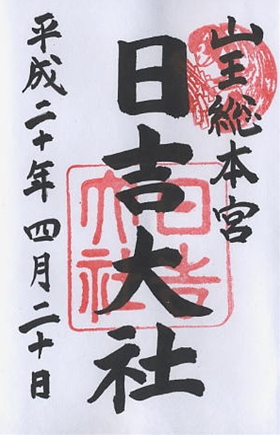 山王総本宮
日吉大社
日吉大社
平成二十年四月二十日